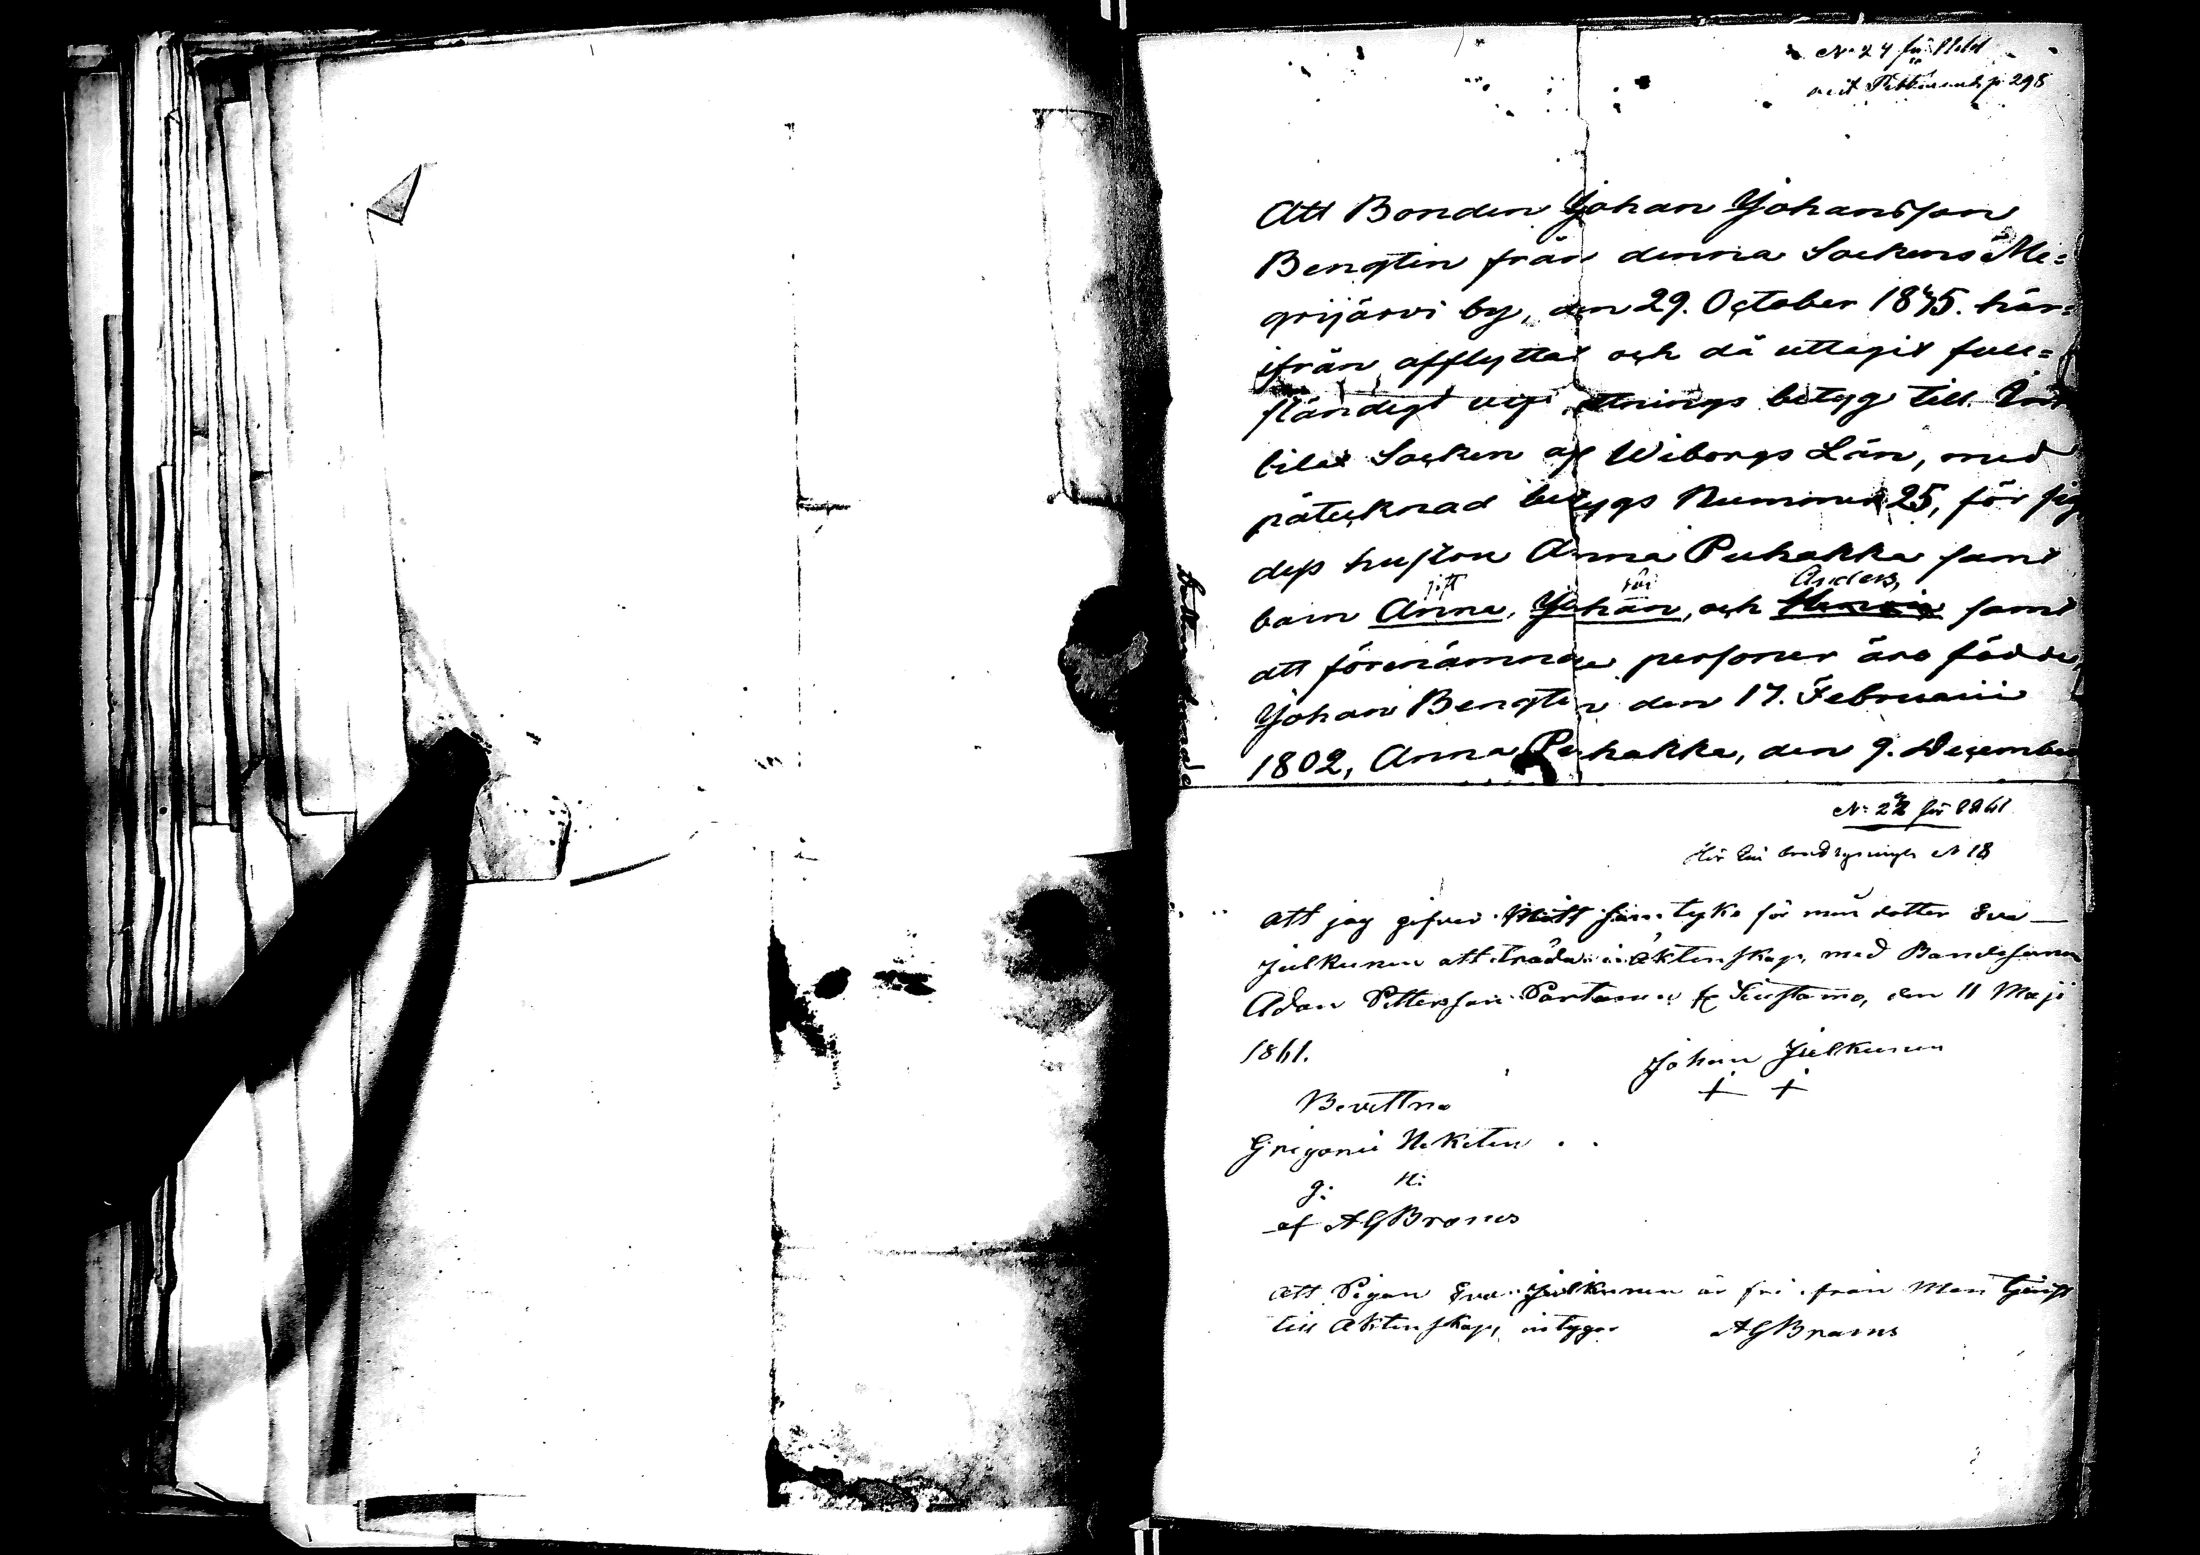 No 24 för 1861
Att Bonden Johan Johansson
Bengtin från denna Sockens Me=
grijärvi by, den 29. October 1845. här=
ifrån afflyttat och då uttagit full=
ständigt betyg till
Socken af Wiborgs Län, med
påteknad betygs Nummer 25, för sig
dess hustru Anna Puhakka samt
gift Anders,
barn Anna, Johan, och samt
att förenämnde personer äro födde,
Johan Bengtin den 17. Februarii
1802, Anna Puhakka, den 9. December
No: 22 för 1861
No 18
att jag gifver Mitt samtyke för min dotter Eva
Julkunen att träda i äktenskap, med Bondesonen
Adam Pettersson Partanen Suistamo, den 11 Maji
1861.
Johan Julkunen
+ +
Bevittna
Grigorii Nikitin
g: N:
af AGBrorus
att Pigan Eva Julkunen är fri ifrån Man
till Aktenskap, intygar AGBrorus